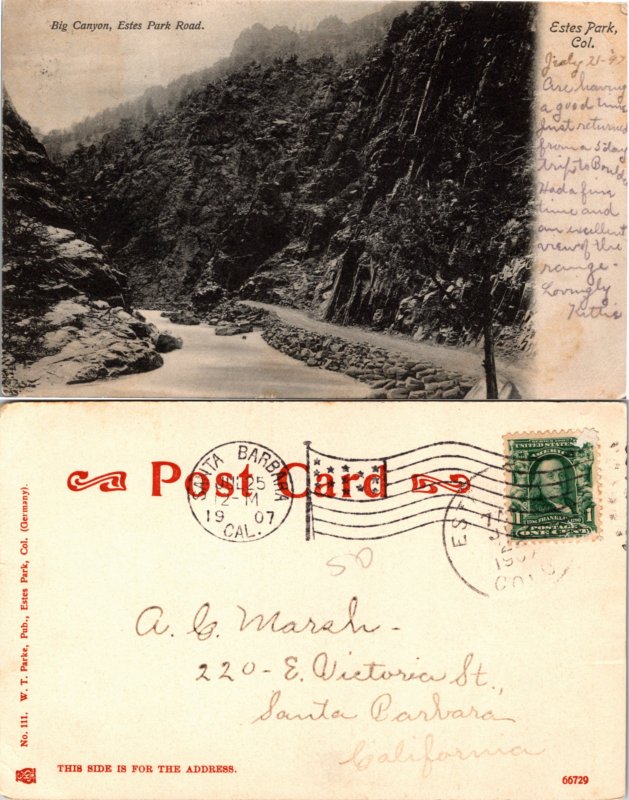 Big Canyon, Estes Park Road.
Estes Park,
Col.
July 21-07
Are having
a good time
Just returned
from a 5 day
trip to Bould
Had a fine
time and
an excellent
view of the
range-
Lovingly
Kittie
Post Card
SANTA BARBARA
25
12-M
1907
CAL.
EST
COLO
SERIES 1902
UNITED STATES
AMERICA
FRANKLIN
1 1
POSTAGE
ONE CENT
50
A. C. Marsh-
220- E. Victoria St.,
Santa Barbara
California
No. 111. W. T. Parke, Pub., Estes Park, Col. (Germany).
THIS SIDE IS FOR THE ADDRESS.
66729